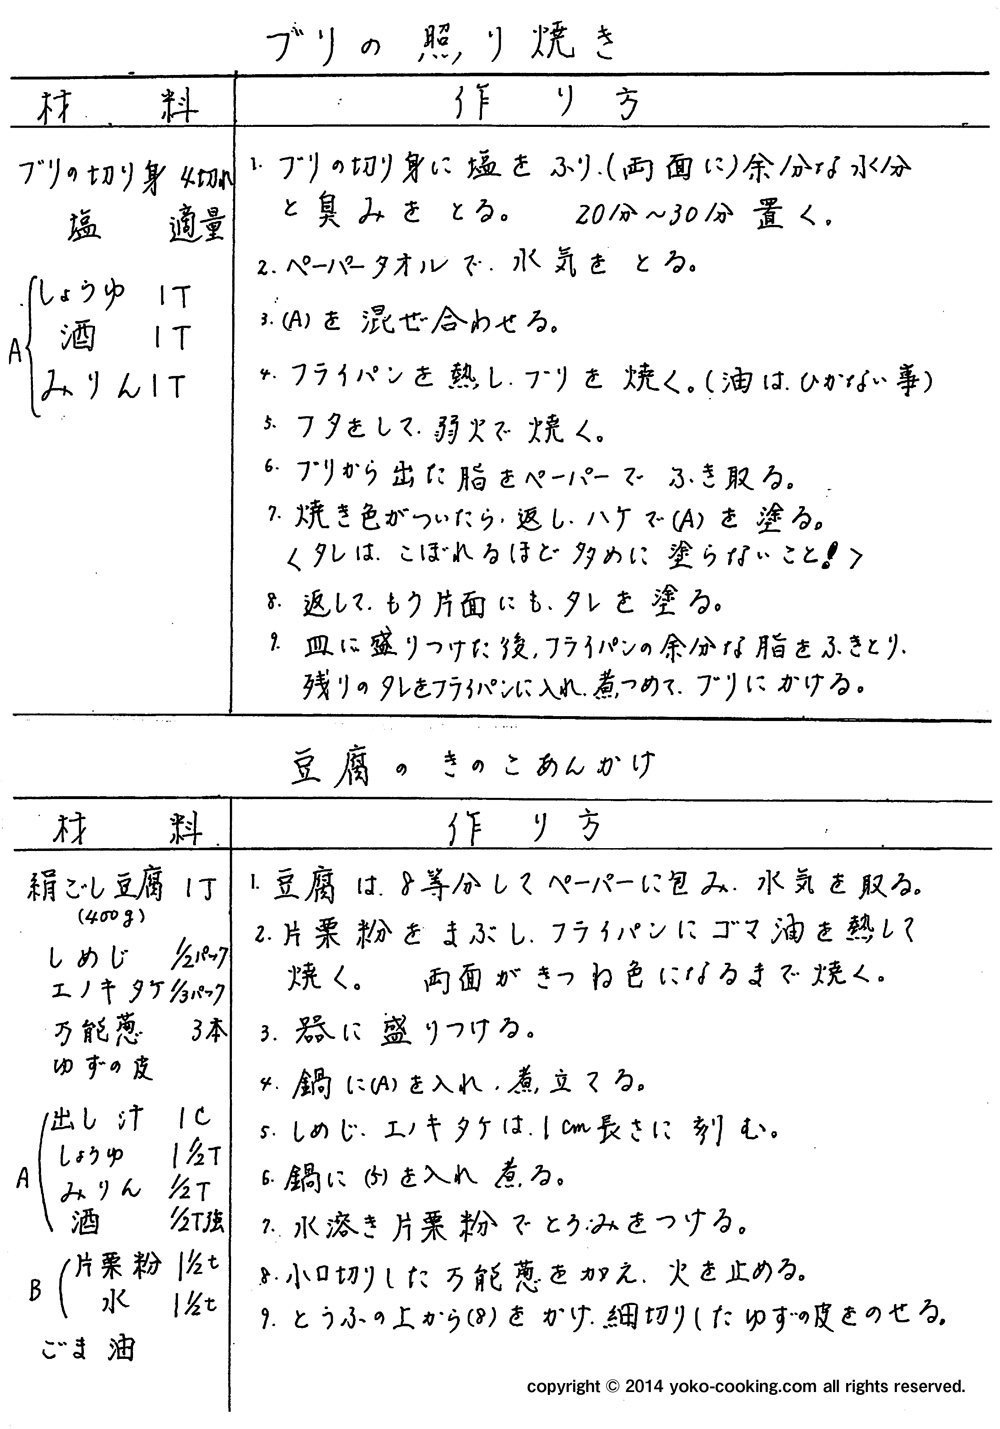 ブリの照り焼き
材料
作り方
ブリの切り身 4切れ
塩 適量
A
しょうゆ 1T
酒 1T
みりん 1T
1. ブリの切り身に塩をふり、(両面に)余分な水分
と臭みをとる。 20分~30分置く。
2. ペーパータオルで、水気をとる。
3. (A)を混ぜ合わせる。
4. フライパンを熱し、ブリを焼く。(油は、ひかない事)
5. フタをして、弱火で焼く。
6. ブリから出た脂をペーパーで ふき取る。
7. 焼き色がついたら、返し、ハケで(A)を塗る。
<タレは、こぼれるほど多めに塗らないこと!>
8. 返して、もう片面にも、タレを塗る。
9. 皿に盛りつけた後、フライパンの余分な脂をふきとり、
残りのタレをフライパンに入れ、煮つめて、ブリにかける。
豆腐のきのこあんかけ
材料
作り方
絹ごし豆腐 1丁
(400g)
しめじ 1/2パック
エノキタケ 1/3パック
万能葱 3本
ゆずの皮
A
出し汁 1C
しょうゆ 1 1/2T
みりん 1/2T
酒 1/2T強
B
片栗粉 1 1/2t
水 1 1/2t
ごま油
1. 豆腐は、8等分してペーパーに包み、水気を取る。
2. 片栗粉をまぶし、フライパンにゴマ油を熱して
焼く。 両面がきつね色になるまで焼く。
3. 器に盛りつける。
4. 鍋に(A)を入れ、煮立てる。
5. しめじ、エノキタケは、1cm長さに刻む。
6. 鍋に(5)を入れ煮る。
7. 水溶き片栗粉でとろみをつける。
8. 小口切りした万能葱を加え、火を止める。
9. とうふの上から(8)をかけ、細切りしたゆずの皮をのせる。
copyright © 2014 yoko-cooking.com all rights reserved.